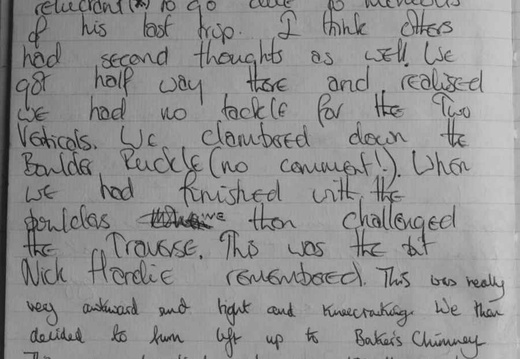 reluctant to go due to memories
of his last trip. I think others
had second thoughts as well. We
got half way there and realised
we had no tackle for the Two
Verticals. We clambered down the
Boulder Ruckle (no comment!). When
we had finished with the
boulders we then challenged
the Traverse. This was the bit
Nick Hardie remembered. This was really
very awkward and tight and kneecracking. We then
decided to turn left up to Baker's Chimney